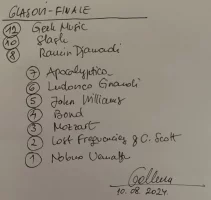 GLASOVI - FINALE
12 Geek Music
10 Slash
8 Ramin Djawadi
7 Apocalyptica
6 Ludovico Einaudi
5 John Williams
4 Bond
3 Mozzart
2 Lost Frequencies & C. Scott
1 Nobuo Uematsu
Gellena
10.08.2024